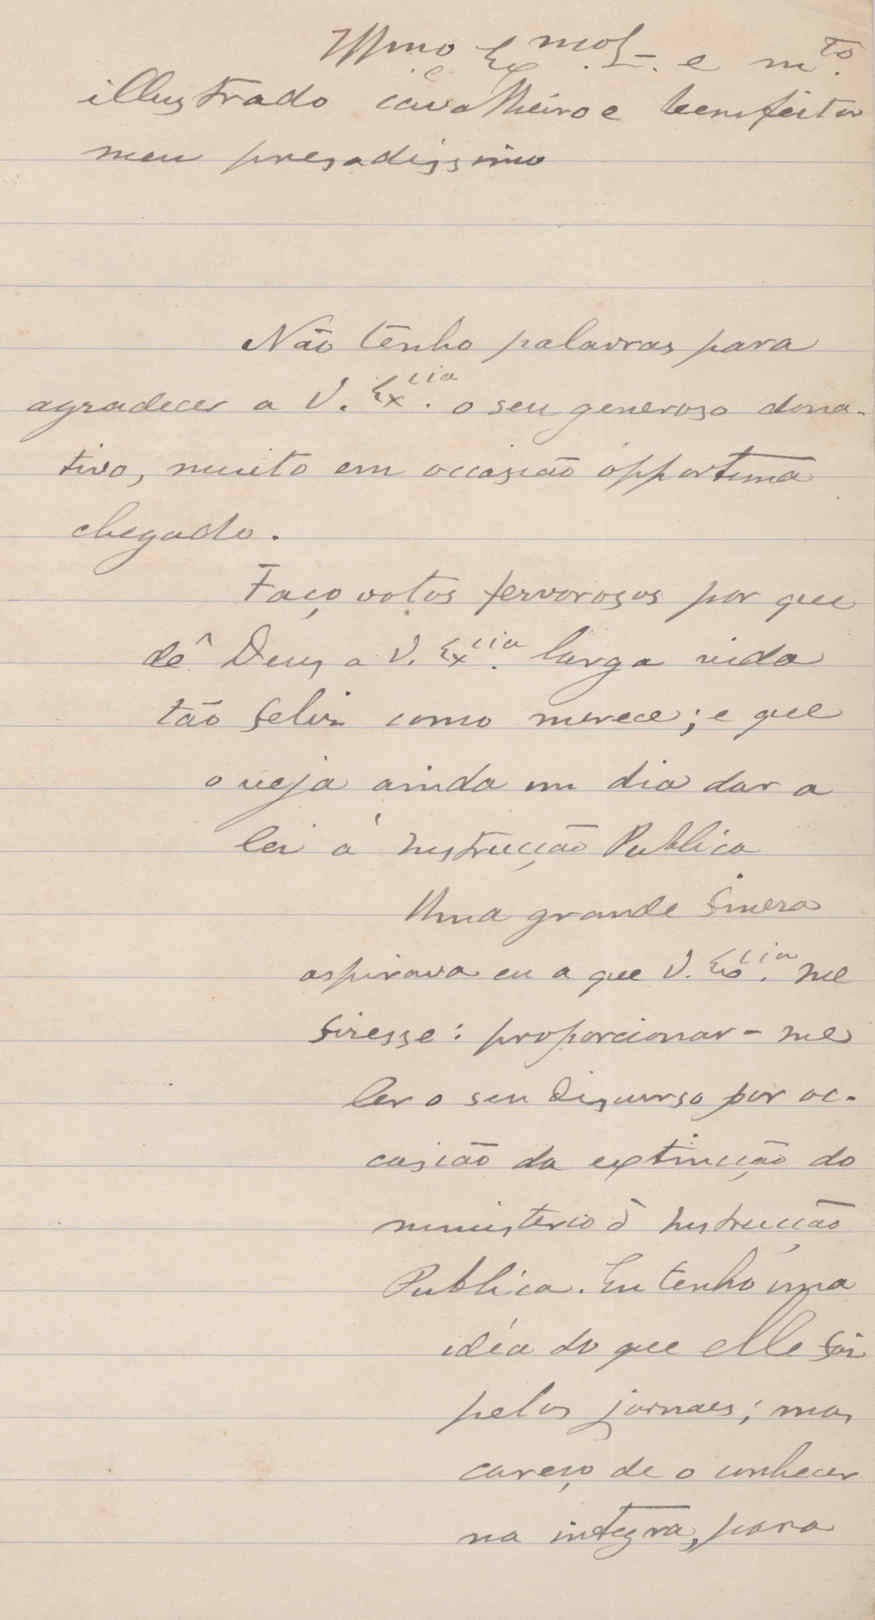 Illmo Exmo Sr. e mto
illustrado cavalheiro e bemfeitor
meu presadissimo
Não tenho palavras para
agradecer a V. Excia. o seu generoso dona-
tivo, muito em occasião opportuna
chegado.
Faço votos fervorosos por que
dê Deus a V. Excia. larga vida
tão feliz como merece; e que
o veja ainda um dia dar a
lei á Instrucção Publica
Uma grande fineza
aspirava eu a que V. Excia. me
fizesse: proporcionar-me
ler o seu discurso por oc-
casião da extincção do
ministerio d' Instrucção
Publica. Eu tenho uma
idéa do que elle foi
pelos jornaes; mas
careço de o conhecer
na integra, para